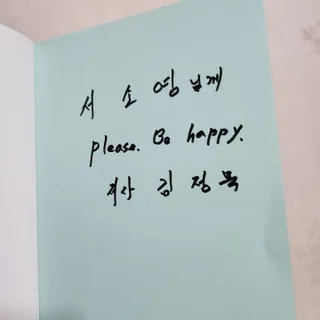 서 소 영 님께
please. Be happy.
저자 김 정 묵